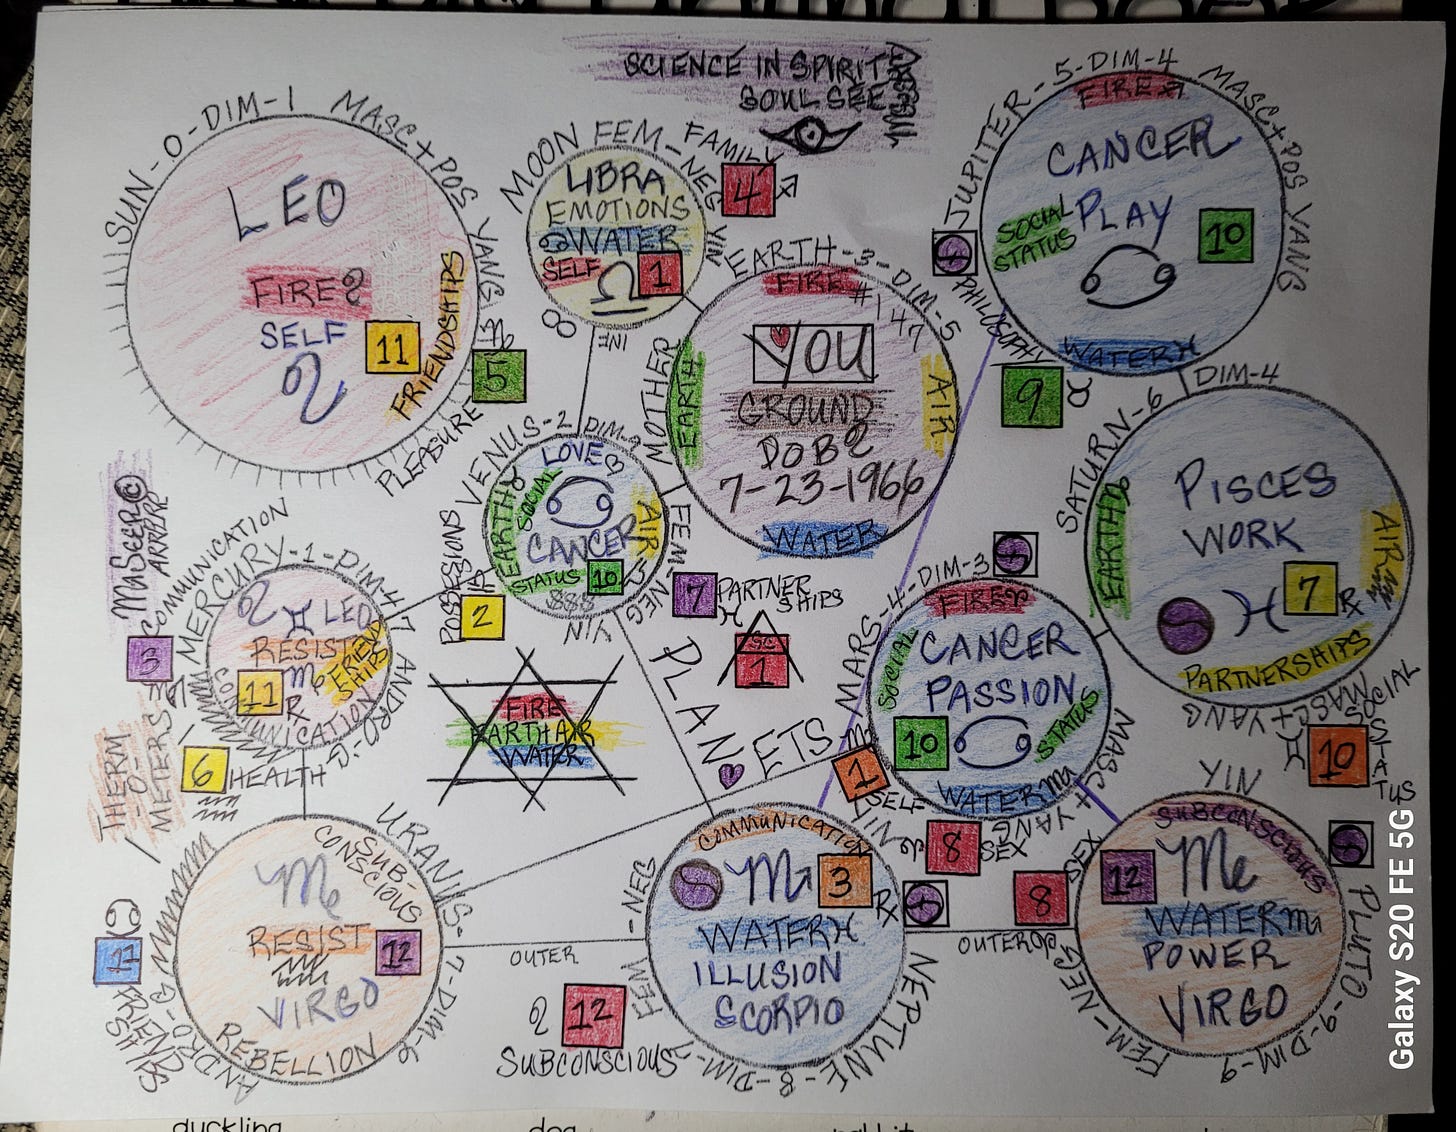 SCIENCE IN SPIRIT
SOUL SEE
SUN-0-DIM-1 MASC+POS YANG
LEO
FIRE
SELF
11
FRIENDSHIPS
5
PLEASURE
MOON FEM-NEG YIN
FAMILY
4
LIBRA
EMOTIONS
WATER
SELF
1
EARTH-3-DIM-5
FIRE
#147
MOTHER
EARTH
YOU
AIR
GROUND
DOB
7-23-1966
WATER
FEM-NEG
JUPITER-5-DIM-4 MASC+POS YANG
FIRE
CANCER
PLAY
SOCIAL
STATUS
10
WATER
PHILOSOPHY
9
VENUS-2
LOVE
SOCIAL
EARTH
CANCER
AIR
STATUS
10
$$$
POSSESIONS
2
SATURN-6 DIM-4
PISCES
WORK
EARTH
AIR
7
PARTNERSHIPS
MASC+YANG
SOCIAL
STATUS
10
MASEER©
COMMUNICATION
3
MERCURY-1-DIM-4
LEO
RESIST
FRIEND
SHIPS
11
COMMUNICATION
ANDRO-G
THERM
-O-
METERS
6
HEALTH
FIRE
EARTH AIR
WATER
7
PARTNER
SHIPS
1
PLAN
ETS
MARS-4-DIM-3
FIRE
SOCIAL
CANCER
PASSION
10
STATUS
WATER
MASC+YANG
1
SELF
8
SEX
URANUS-7-DIM-6
SUB-
CONSCIOUS
RESIST
12
VIRGO
REBELLION
ANDRO-G
11
FRIENDSHIPS
OUTER
12
SUBCONSCIOUS
NEPTUNE-8-DIM-
FEM-NEG
YIN
COMMUNICATION
3
WATER
ILLUSION
SCORPIO
OUTER
8
SEX
YIN
SUBCONSCIOUS
12
WATER
POWER
VIRGO
FEM-NEG
PLUTO-9-DIM-9
Galaxy S20 FE 5G
duckling
dog